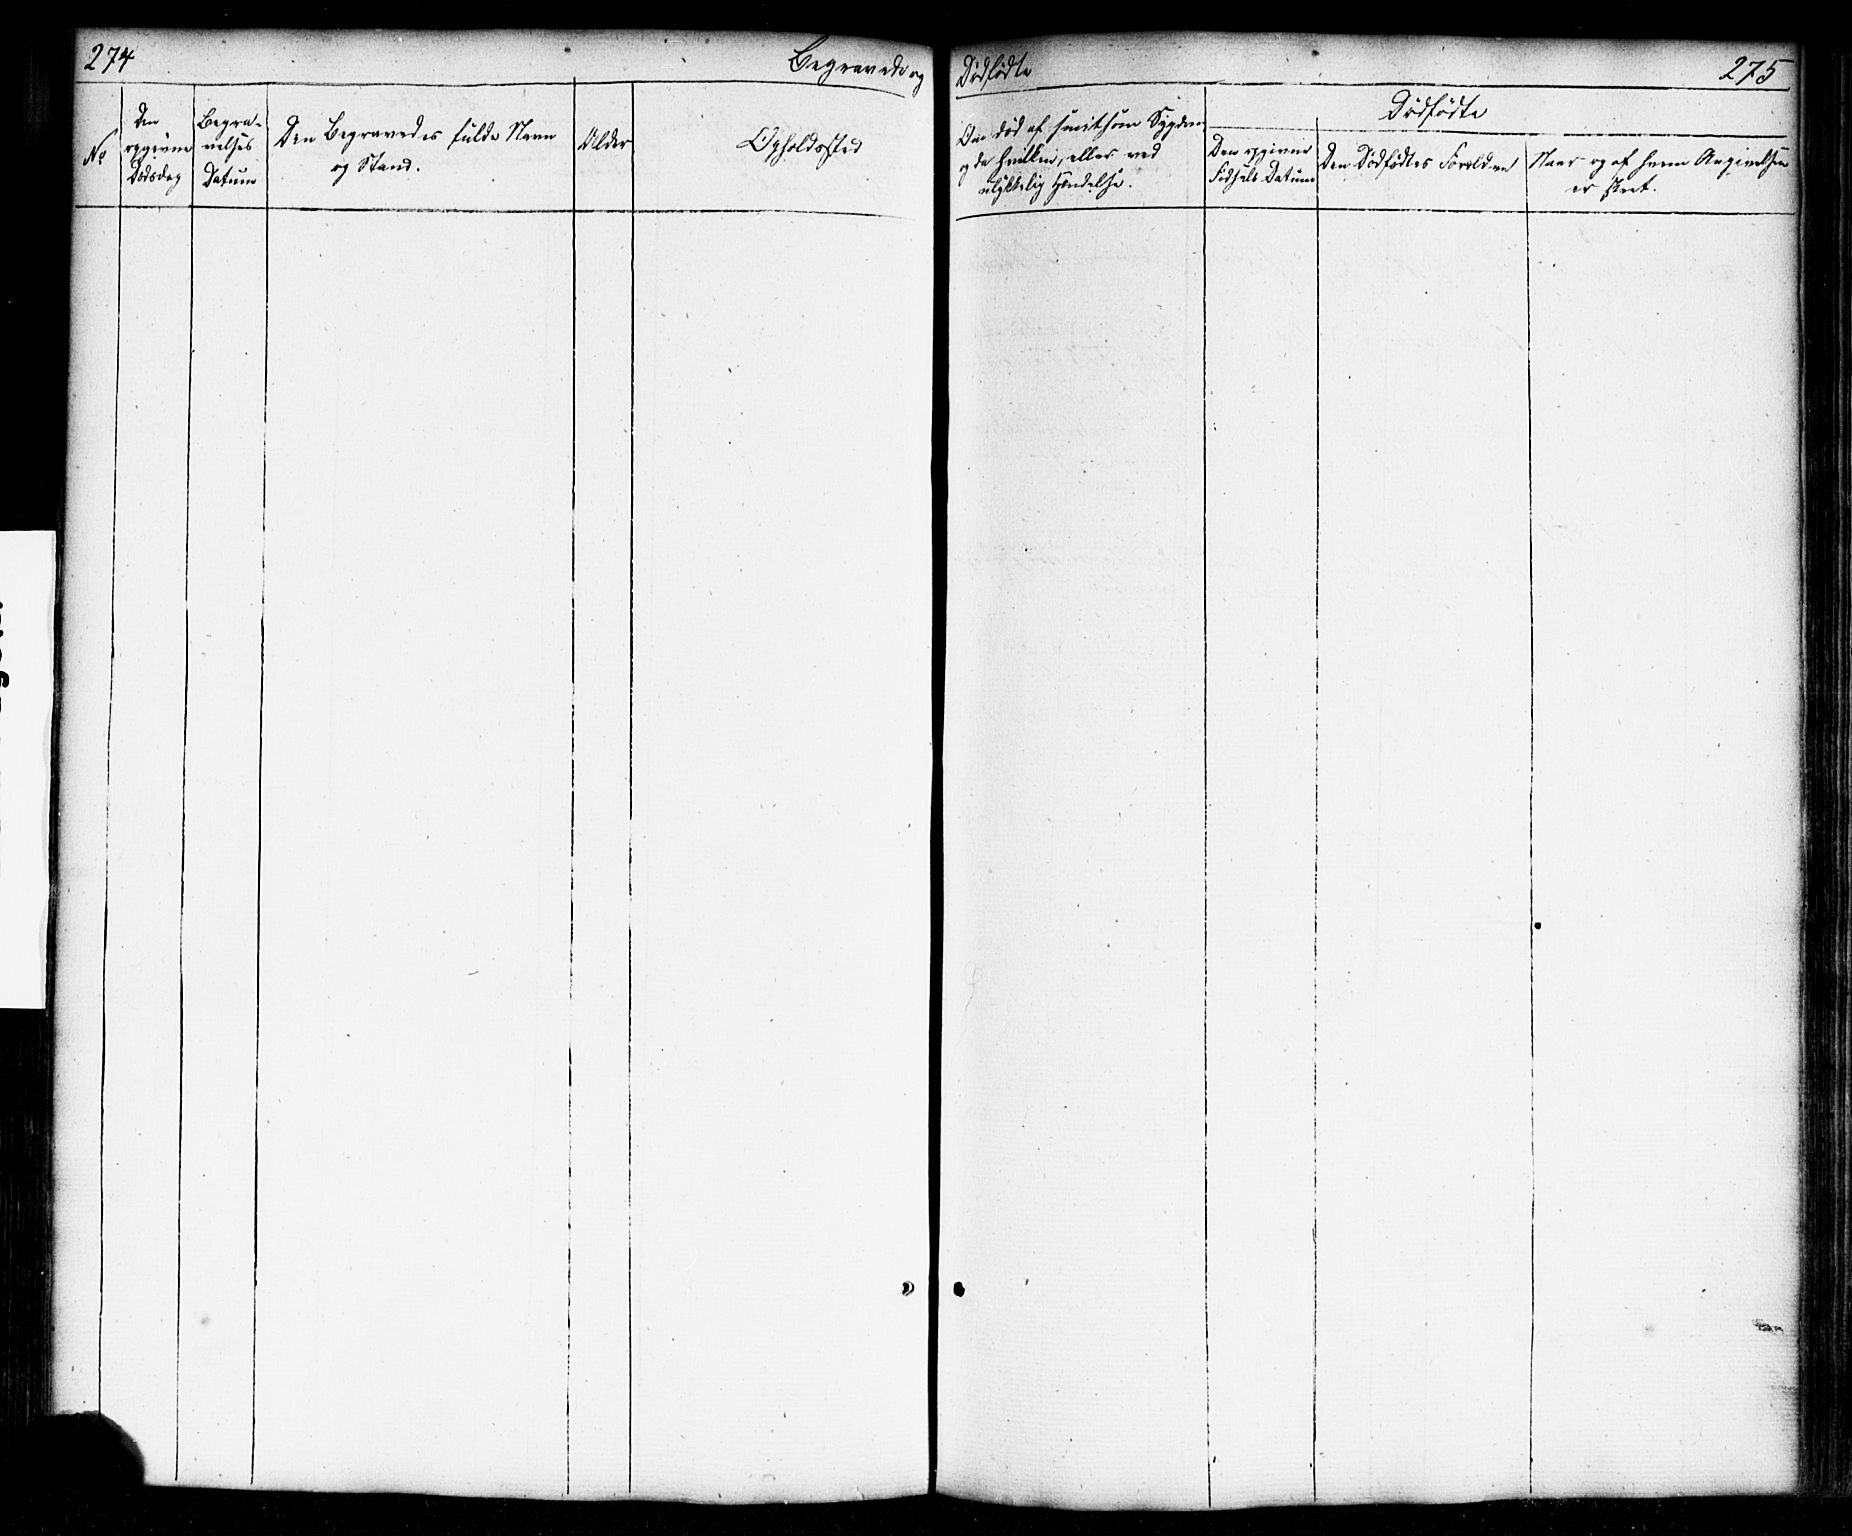 274
Begravede og
No
Den
opgivne
Dødsdag
Begra-
velses
Datum
Den Begravedes fulde Navn
og Stand.
Alder
Opholdssted
Dødfødte
275
Om død af smitsom Sygdom
og da hvilken, eller ved
ulykkelig Hændelse.
Dødfødte
Den opgivne
Fødsels Datum
Den Dødfødtes Forældre
Naar og af hvem Angivelsen
er skeet.